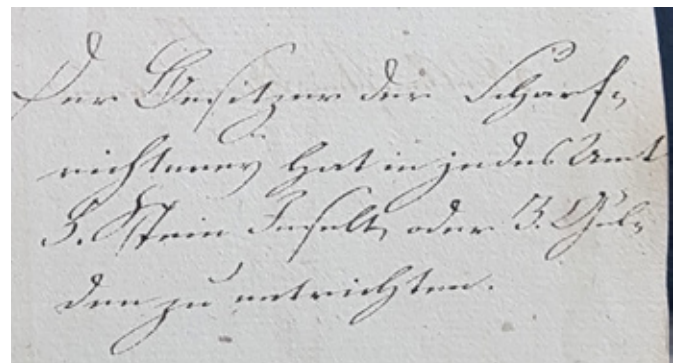 Der Besitzer der Scharf-
richterey hat in jedes Amt
5. Stein Inselt, oder 3. Gul-
den zu entrichten.